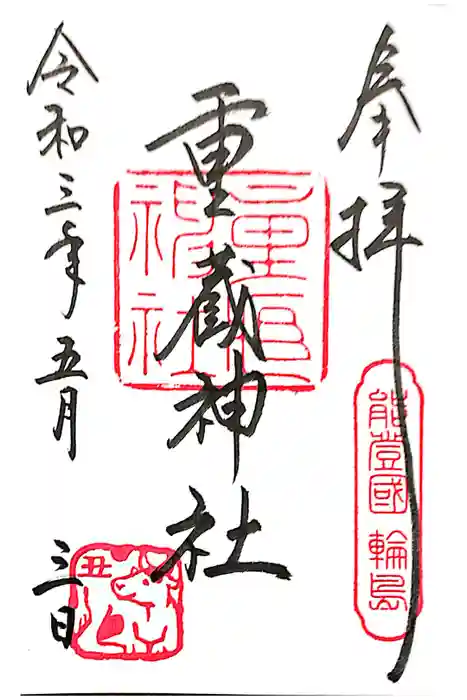 奉拝
能登國 輪島
重蔵神社
令和三年五月三日
丑